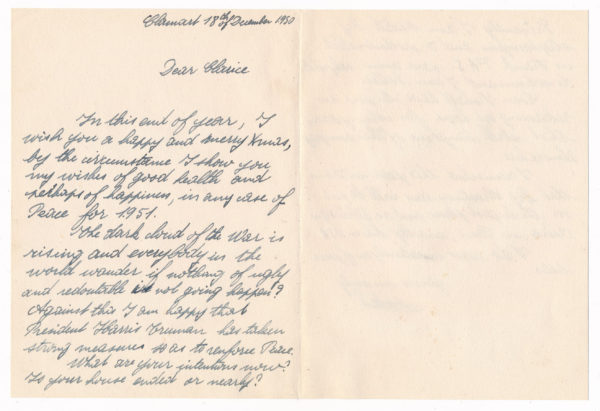 Clamart 18th of December 1950
Dear Clarice
In this end of year, I
wish you a happy and merry Xmas,
by the circumstance I show you
my wishes of good health and
perhaps of happiness, in any case of
Peace for 1951.
The dark cloud of the War is
rising and everybody in the
world wander if nothing of ugly
and redoutable is not going happen?
Against this I am happy that
President Harris Truman has taken
strong measures so as to renforce Peace.
What are your intentions now?
Is your house ended or nearly?